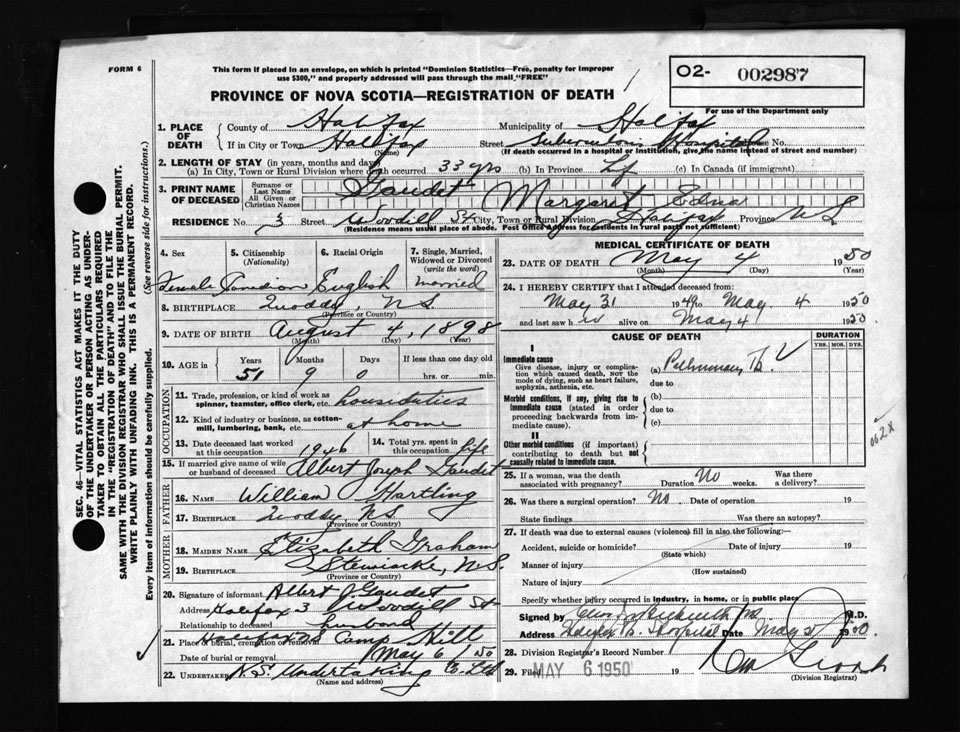 FORM 6
This form if placed in an envelope, on which is printed "Dominion Statistics—Free, penalty for improper
use $300," and properly addressed will pass through the mail "FREE"
O2- 002987
PROVINCE OF NOVA SCOTIA—REGISTRATION OF DEATH
For use of the Department only
1. PLACE OF DEATH
County of Halifax Municipality of Halifax
If in City or Town Halifax Street Tuberculosis Hospital No.
(Name) (If death occurred in a hospital or institution, give the name instead of street and number)
2. LENGTH OF STAY (in years, months and days)
(a) In City, Town or Rural Division where death occurred 33 yrs (b) In Province Lf (c) In Canada (if immigrant)
3. PRINT NAME OF DECEASED
Surname or Last Name Gaudet
All Given or Christian Names Margaret Edna
RESIDENCE No. 3 Street Woodill St City, Town or Rural Division Halifax Province N S
(Residence means usual place of abode. Post Office Address for residents in rural parts not sufficient)
4. Sex Female
5. Citizenship (Nationality) Canadian
6. Racial Origin English
7. Single, Married, Widowed or Divorced (write the word) married
8. BIRTHPLACE Quoddy, NS
(Province or Country)
9. DATE OF BIRTH August 4, 1898
(Month) (Day) (Year)
10. AGE in Years Months Days If less than one day old
51 9 0 hrs. or min.
OCCUPATION
11. Trade, profession, or kind of work as spinner, teamster, office clerk, etc. houseduties
12. Kind of industry or business, as cotton-mill, lumbering, bank, etc. at home
13. Date deceased last worked at this occupation 1946
14. Total yrs. spent in this occupation life
15. If married give name of wife or husband of deceased Albert Joseph Gaudet
FATHER
16. NAME William Hartling
17. BIRTHPLACE Quoddy NS
(Province or Country)
MOTHER
18. MAIDEN NAME Elizabeth Graham
19. BIRTHPLACE Stewiacke, N.S.
(Province or Country)
20. Signature of informant Albert J. Gaudet
Address Halifax 3 Woodill St
Relationship to deceased husband
21. Place of burial, cremation or removal Halifax NS Camp Hill
Date of burial or removal May 6 / 50
22. UNDERTAKER N.S. Undertaking Co Ltd
(Name and address)
MEDICAL CERTIFICATE OF DEATH
23. DATE OF DEATH May 4 1950
(Month) (Day) (Year)
24. I HEREBY CERTIFY that I attended deceased from:
May 31 1949 to May 4 1950
and last saw h alive on May 4 1950
CAUSE OF DEATH DURATION
YRS. MOS. DYS.
I
Immediate cause
Give disease, injury or complication which caused death, NOT the mode of dying, such as heart failure, asphyxia, asthenia, etc.
(a) Pulmonary Tb.
due to
Morbid conditions, if any, giving rise to immediate cause (stated in order proceeding backwards from immediate cause).
(b)
due to
(c)
II
Other morbid conditions (if important) contributing to death but not causally related to immediate cause.
002x
25. If a woman, was the death associated with pregnancy? No Duration weeks. Was there a delivery?
26. Was there a surgical operation? No. Date of operation 19
State findings Was there an autopsy?
27. If death was due to external causes (violence) fill in also the following:
Accident, suicide or homicide? Date of injury 19
(State which)
Manner of injury
(How sustained)
Nature of injury
Specify whether injury occurred in industry, in home, or in public place
Signed by M.D.
Address Halifax Tb. Hospital Date May 5 1950.
28. Division Registrar's Record Number
29. Filed MAY 6 1950 19
(Division Registrar)
SEC. 46—VITAL STATISTICS ACT MAKES IT THE DUTY
OF THE UNDERTAKER OR PERSON ACTING AS UNDERTAKER TO OBTAIN ALL THE PARTICULARS REQUIRED
IN THE "REGISTRATION OF DEATH" AND TO FILE THE
SAME WITH THE DIVISION REGISTRAR WHO SHALL ISSUE THE BURIAL PERMIT.
WRITE PLAINLY WITH UNFADING INK. THIS IS A PERMANENT RECORD.
Every item of information should be carefully supplied. (See reverse side for instructions.)